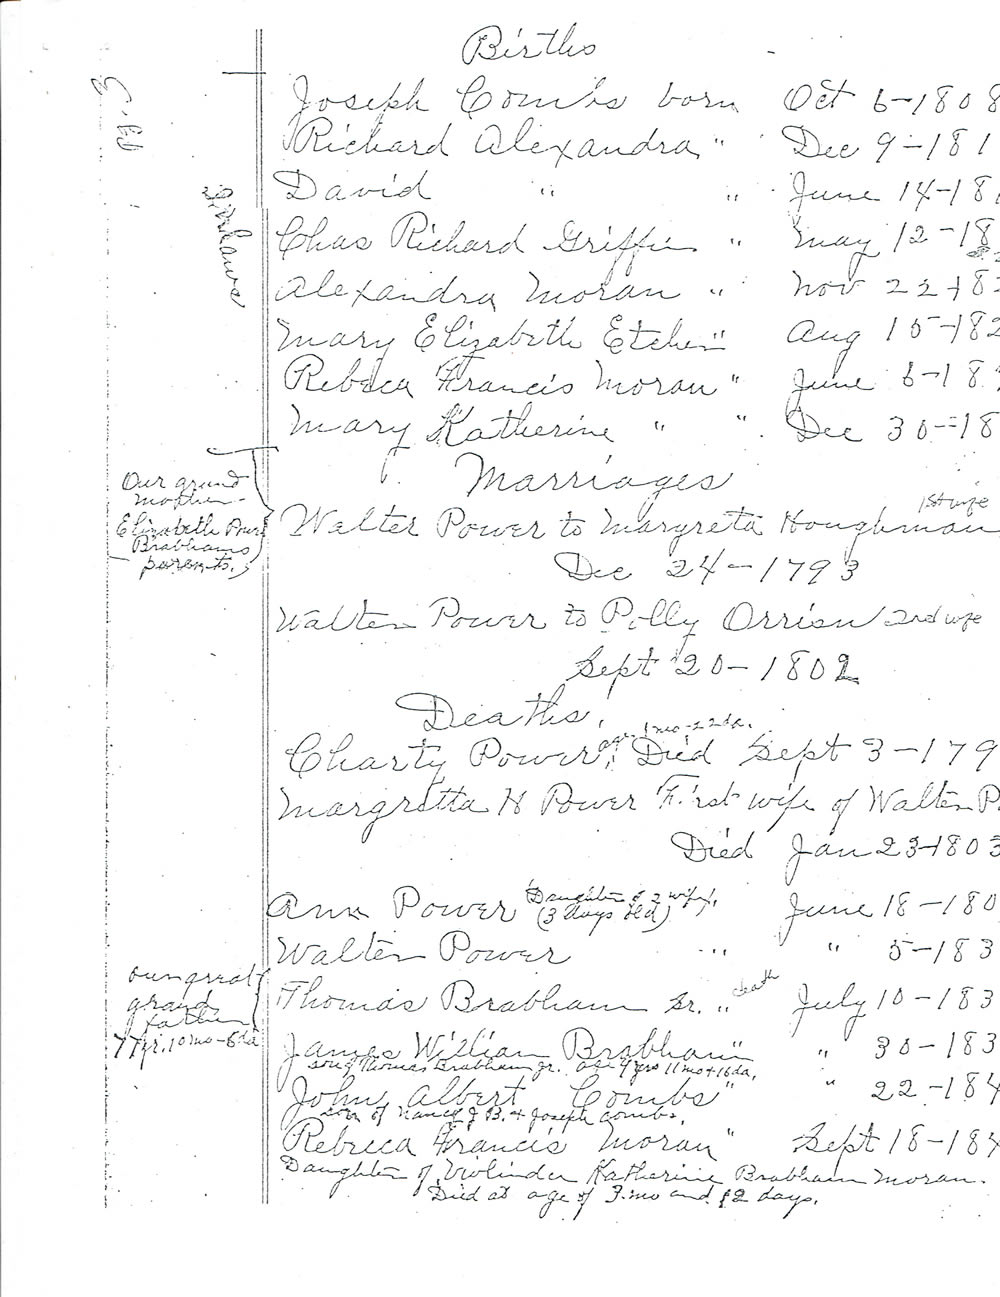 Births
Joseph Combs born Oct 6-1808
Richard Alexandra " Dec 9-181
David " " June 14-18
Chas Richard Griffin " May 12-18
Alexandra Moran " Nov 22-182
Mary Elizabeth Etcher " Aug 15-182
Rebeca Francis Moran " June 6-18
Mary Katherine " " Dec 30-18
Inlaws
Pg-3
Marriages
Our grand
mother-
Elizabeth Power
Brabhams
parents.
Walter Power to Margreta Houghman 1st wife
Dec 24-1793
Walter Power to Polly Orrison 2nd wife
Sept 20-1802
Deaths.
Charty Power, age 1 mo-22da. Died Sept 3-179
Margretta H Power First wife of Walter P
Died Jan 23-1803
Ann Power Daughter of 2 wife, (3 days old) June 18-180
Walter Power " " 5-183
our great
grand
father
77yr. 10mo-6da
Thomas Brabham Sr. " death July 10-183
James William Brabham " " 30-183
son of Thomas Brabham jr. age 4 yrs 11 mo + 16 da.
John Albert Combs " " 22-184
son of Nancy J B. + Joseph Combs.
Rebeca Francis Moran " Sept 18-184
Daughter of Violinder Katherine Brabham Moran.
Died at age of 3 mo and 12 days.